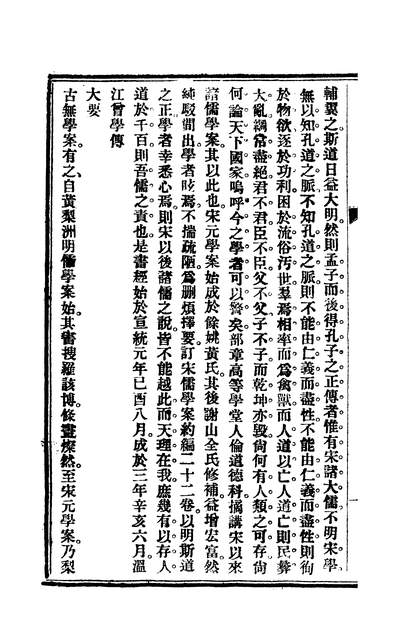 輔翼之斯道日益大明。然則孟子而後得孔子之正傳者惟有宋諸大儒不明宋學
無以知孔道之脈。不知孔道之脈則不能由仁義而盡性。不能由仁義而盡性則徇
於物欲逐於功利困於流俗汚世。羣焉相率而爲禽獸而人道以亡。人道亡則民彝
大亂綱常盡絕君不君臣不臣父不父子不子而乾坤亦毀尙何有人類之可存尙
何論天下國家。嗚呼今之學者可以警矣。部章高等學堂人倫道德科摘講宋以來
諸儒學案其以此也。宋元學案始成於餘姚黃氏其後謝山全氏修補益增宏富然
純駁間出學者眩焉。不揣疏陋爲刪煩擇要訂宋儒學案約編二十二卷以明斯道
之正學者幸悉心焉。則宋以後諸儒之說皆不能越此而天理在我庶幾有以存人
道於千百則吾儒之責也。是書經始於宣統元年己酉八月。成於三年辛亥六月。溫
江曾學傳
大要
古無學案。有之自黃梨洲明儒學案始。其書搜羅該博。條畫燦然。至宋元學案。乃梨
一